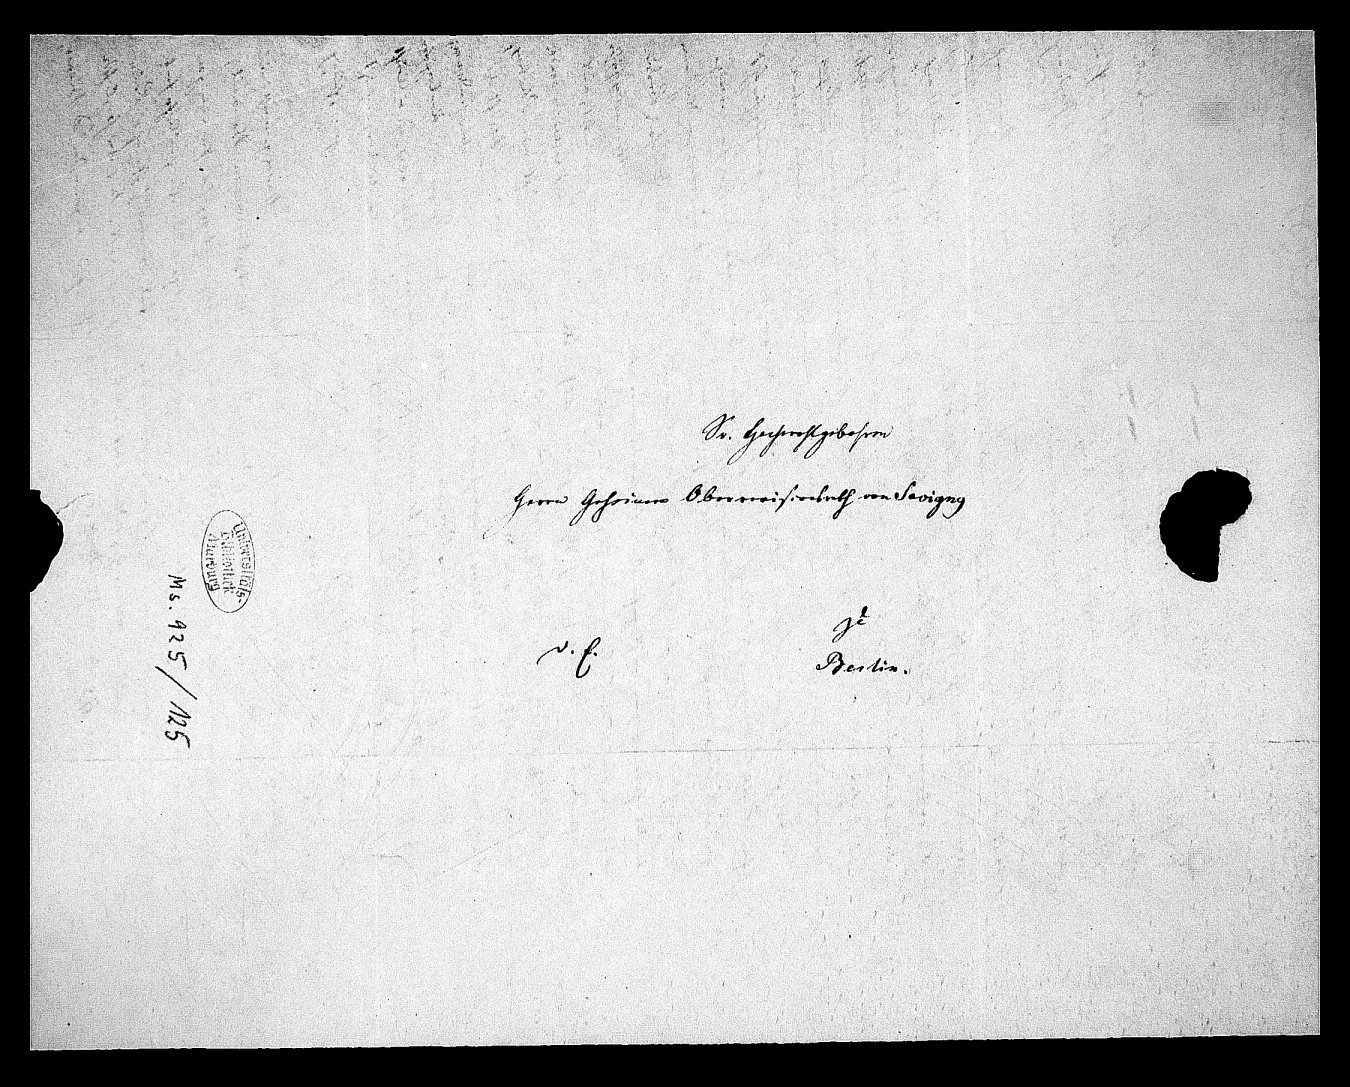 Sr. Hochwohlgebohren
Herrn Geheimen Oberrevisionsrath von Savigny
zu
Berlin.
d. E.
Universitäts-
Bibliothek
Marburg
Ms. 925/125